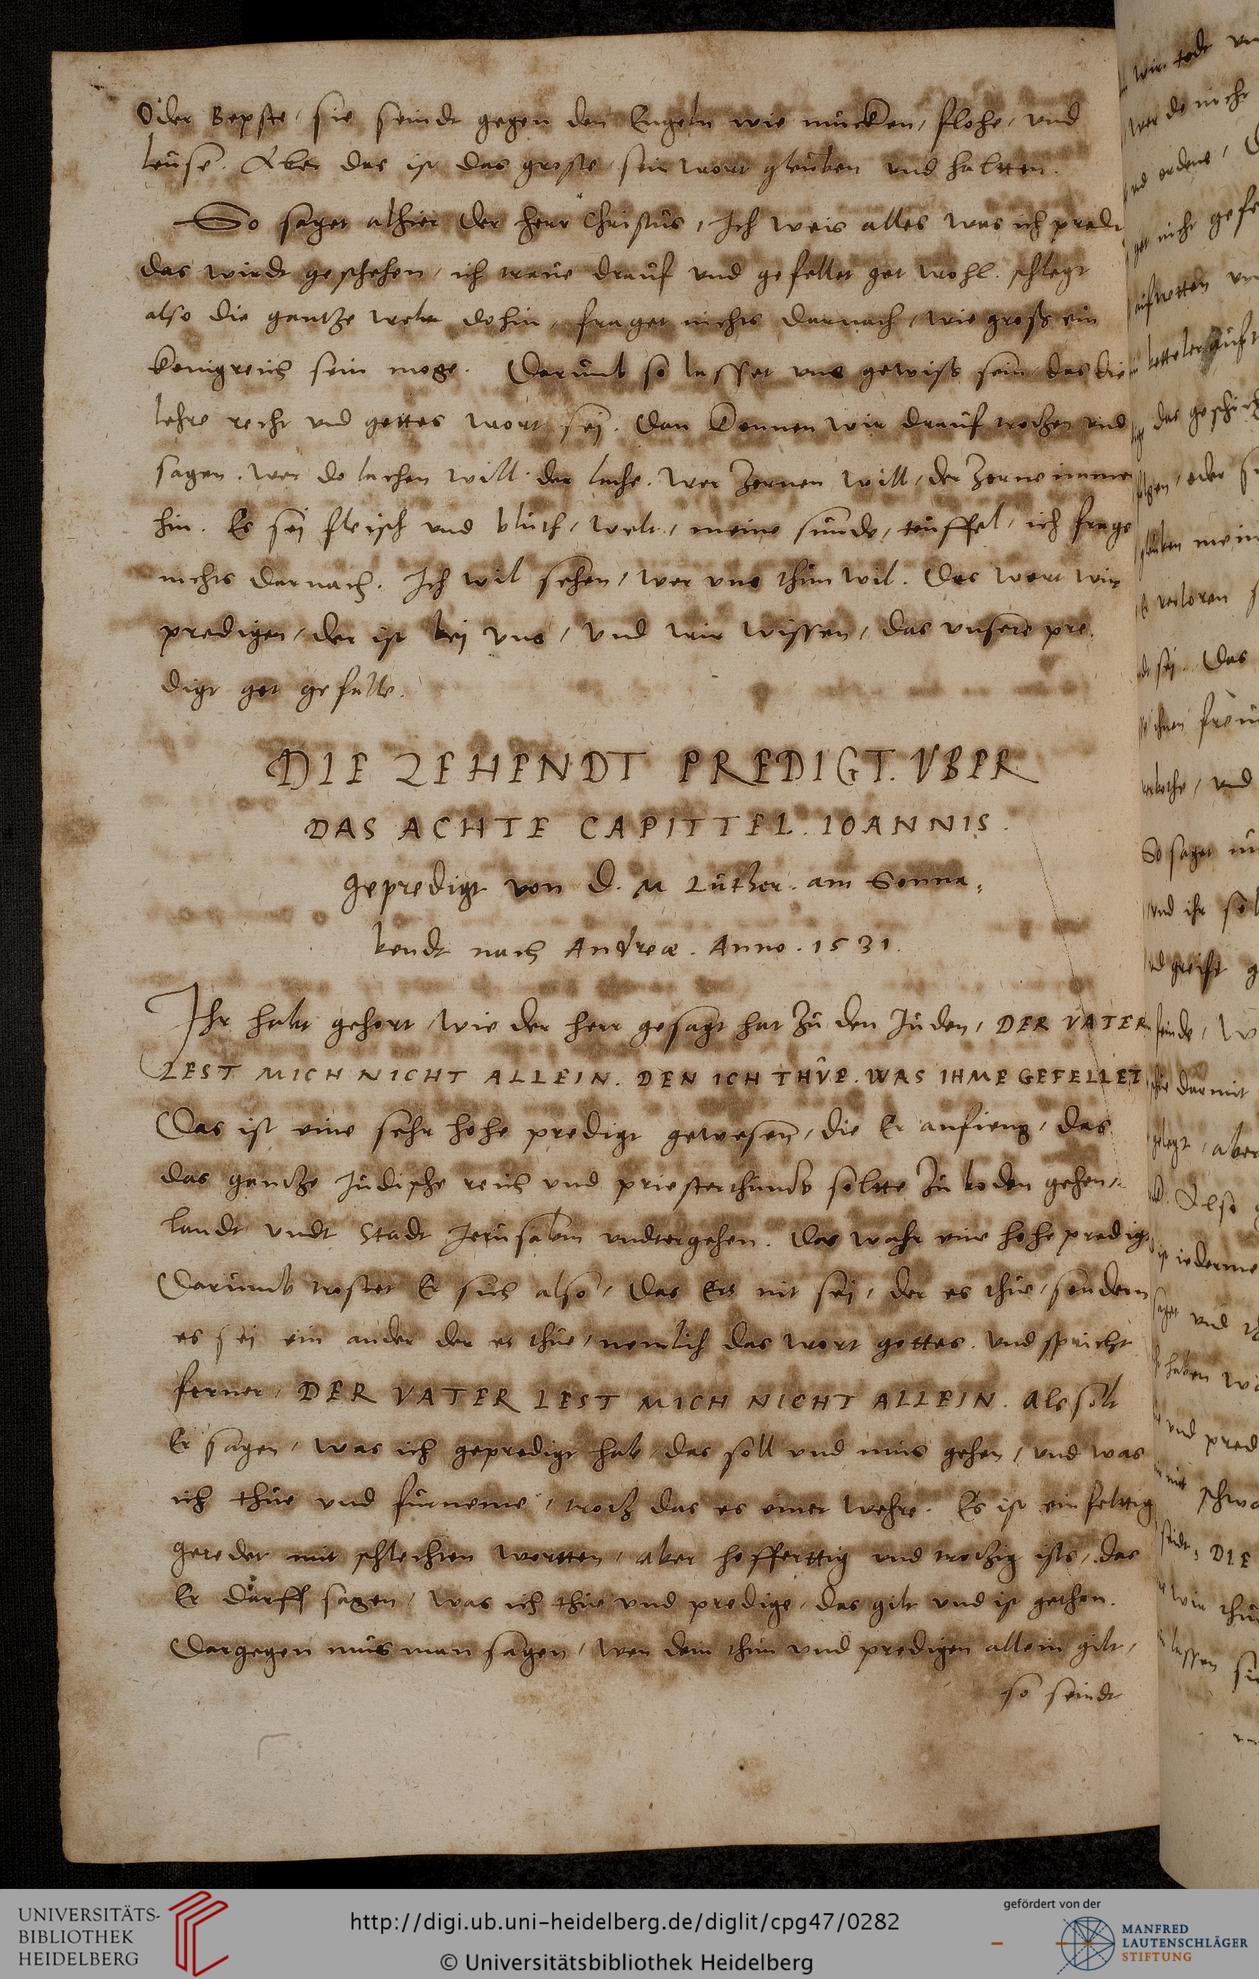 Oder Bepste, sie seindt gegen den Engeln wie mücken, flohe, und
leüse. Aber das ist das groste, sein wort gleuben und haltten.
So saget alhier der herr Christus, Ich weis alles was ich predi
das wirdt geschehen, ich traue drauf und gefellet got wohl. schlegt
also die gantze welt dohin, fraget nichts darnach, wie groß ein
konigreich sein moge. Darümb so lasset uns gewiß sein, das die
lehre recht und gottes wort sej. Dan konnen wir drauf trotzen und
sagen. wer do lachen will der lache. wer zornen will, der zorne immer
hin. Es sej fleisch und bluth, welt, meine sünde, teüffel, ich frage
nichts darnach. Ich wil sehen, wer uns thün wil. Des wort wir
predigen, der ist bej uns, und wir wissen, das unsere pre,
digt got gefalle.
DIE ZEHENDT PREDIGT. VBER
DAS ACHTE CAPITTEL. IOANNIS.
gepredigt von D. M Lüther. am Sonna,
bendt nach Andreæ. Anno. 1531.
Ihr habt gehort, wie der herr gesagt hat zü den Jüden, DER VATER
LEST MICH NICHT ALLEIN. DEN ICH THVE. WAS IHME GEFELLET
Das ist eine sehr hohe predigt gewesen, die Er anfieng, das
das gantze Jüdische reich und priesterthumb soltte zü boden gehen,
landt undt Stadt Jerüsalem undtergehen. Das wahr eine hohe predigt
Darümb trostet Er sich also, Das Ers nit sej, der es thüe, sondern
es sej ein ander der es thüe, nemlich das wort gottes. und spricht
ferner, DER VATER LEST MICH NICHT ALLEIN. Als solt
Er sagen, was ich gepredigt hab, das soll und müs gehen, und was
ich thüe und fürneme, trotz das es einer wehre. Es ist einfelttig
geredet mit schlechten wortten, aber hofferttig und trotzig ists, das
Er darff sagen, was ich thüe und predige, das gilt und ist gethan.
Dargegen müs man sagen, wen dein thün und predigen allein gilt,
so seindt
UNIVERSITÄTS-
BIBLIOTHEK
HEIDELBERG
http://digi.ub.uni-heidelberg.de/diglit/cpg47/0282
© Universitätsbibliothek Heidelberg
gefördert von der
MANFRED
LAUTENSCHLÄGER
STIFTUNG